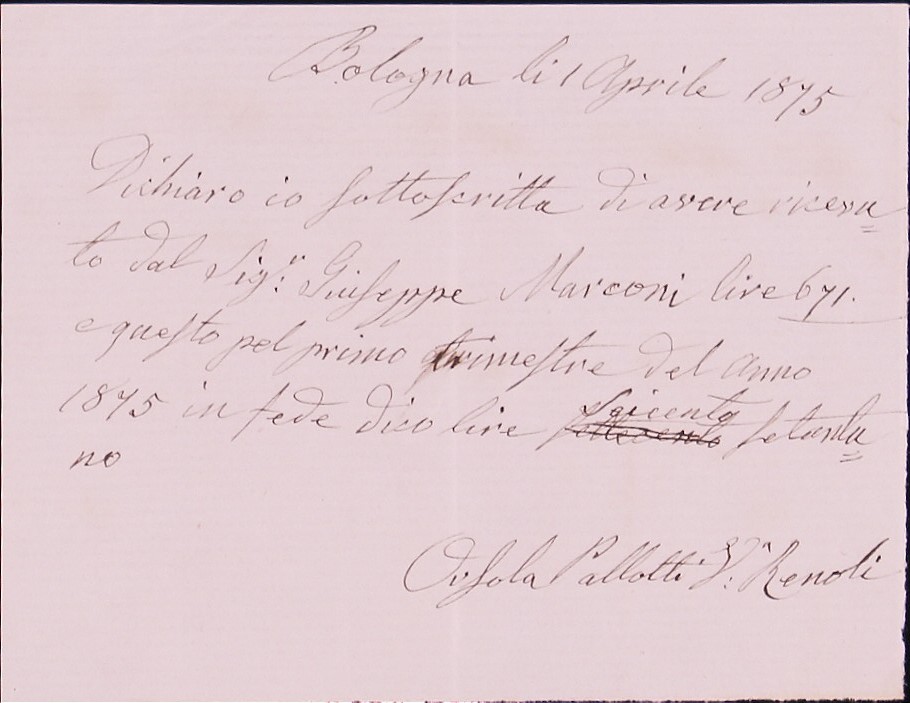 Bologna li 1 Aprile 1875
Dichiaro io sottoscritta di avere ricevu=
to dal Sigr. Giuseppe Marconi lire 671.
e questo pel primo trimestre del anno
1875 in fede dico lire seicento settecento setantu=
no
Orsola Pallotti Va. Renoli